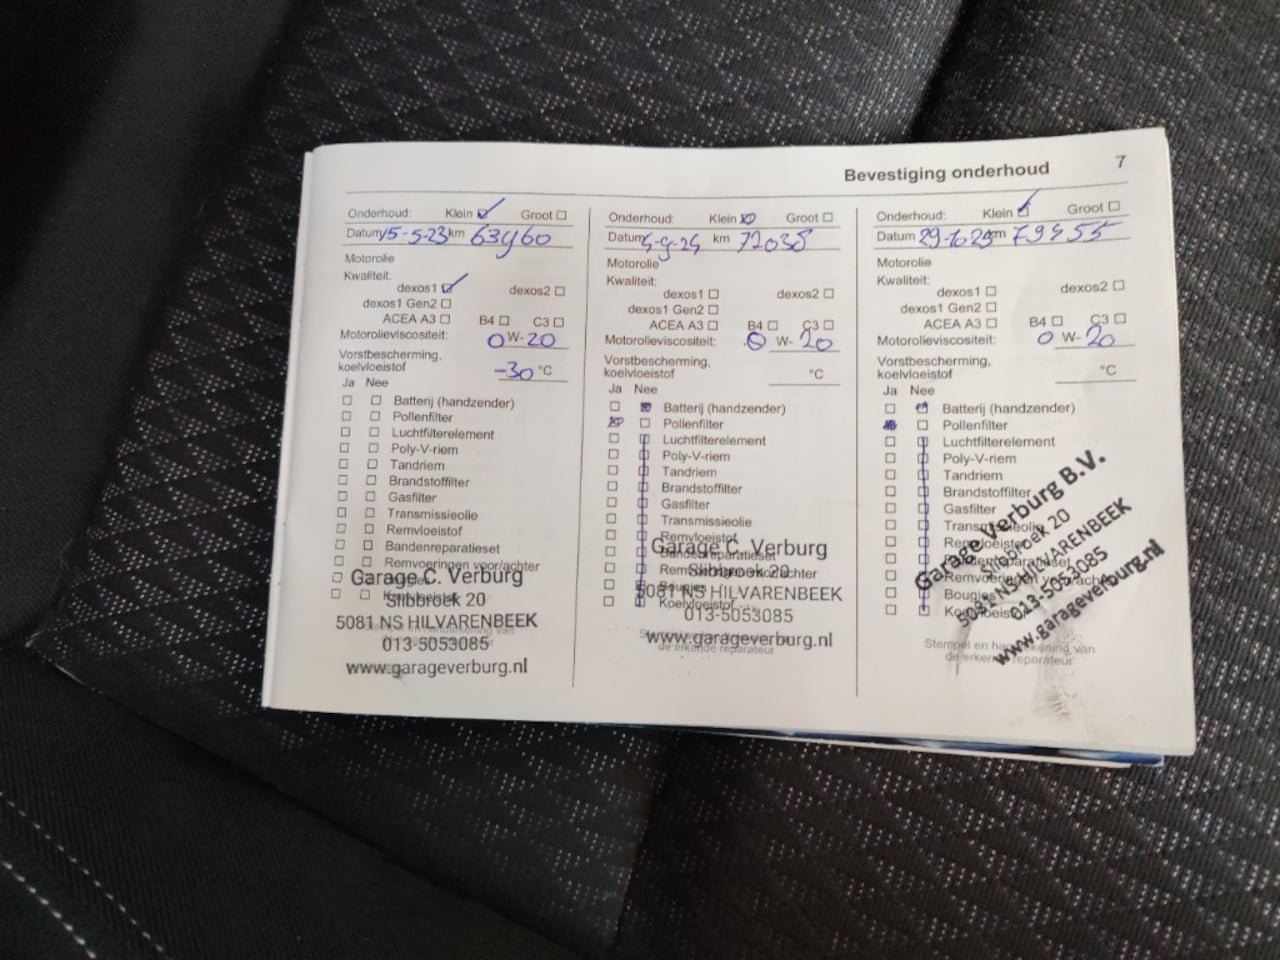 Bevestiging onderhoud 7
Onderhoud: Klein Groot
Datum 15-5-23 km 63460
Motorolie
Kwaliteit:
dexos1 dexos2
dexos1 Gen2
ACEA A3 B4 C3
Motorolieviscositeit: 0 W-20
Vorstbescherming,
koelvloeistof -30 °C
Ja Nee
Batterij (handzender)
Pollenfilter
Luchtfilterelement
Poly-V-riem
Tandriem
Brandstoffilter
Gasfilter
Transmissieolie
Remvloeistof
Bandenreparatieset
Remvoeringen voor/achter
Garage C. Verburg
Slibbroek 20
5081 NS HILVARENBEEK
013-5053085
www.garageverburg.nl
Onderhoud: Klein Groot
Datum km
Motorolie
Kwaliteit:
dexos1 dexos2
dexos1 Gen2
ACEA A3 B4 C3
Motorolieviscositeit: 0 W- 20
Vorstbescherming,
koelvloeistof °C
Ja Nee
Batterij (handzender)
Pollenfilter
Luchtfilterelement
Poly-V-riem
Tandriem
Brandstoffilter
Gasfilter
Transmissieolie
Remvloeistof
Garage C. Verburg
Bandenreparatieset
Slibbroek 20
Remvoeringen voor/achter
Bougies
5081 NS HILVARENBEEK
Koelvloeistof
013-5053085
www.garageverburg.nl
de erkende reparateur
Onderhoud: Klein Groot
Datum km 79455
Motorolie
Kwaliteit:
dexos1 dexos2
dexos1 Gen2
ACEA A3 B4 C3
Motorolieviscositeit: 0 W- 20
Vorstbescherming,
koelvloeistof °C
Ja Nee
Batterij (handzender)
Pollenfilter
Luchtfilterelement
Poly-V-riem
Tandriem
Brandstoffilter
Gasfilter
Transmissieolie
Remvloeistof
Bandenreparatieset
Remvoeringen voor/achter
Bougies
Koelvloeistof
Garage Verburg B.V.
Slibbroek 20
5081 NS HILVARENBEEK
013-5053085
www.garageverburg.nl
Stempel en handtekening van
de erkende reparateur